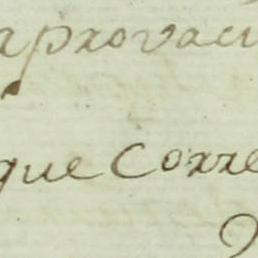 aprovaci
que Corre